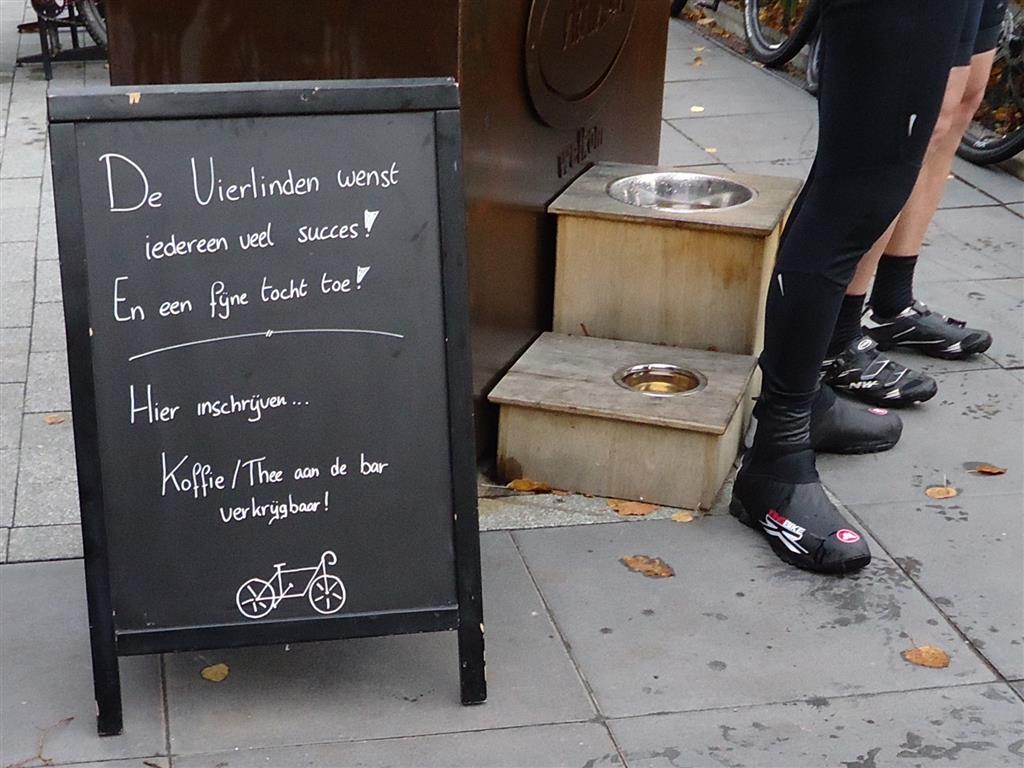 De Vierlinden wenst
iedereen veel succes!
En een fijne tocht toe!
Hier inschrijven...
Koffie/Thee aan de bar
verkrijgbaar!
welkom
BIKE